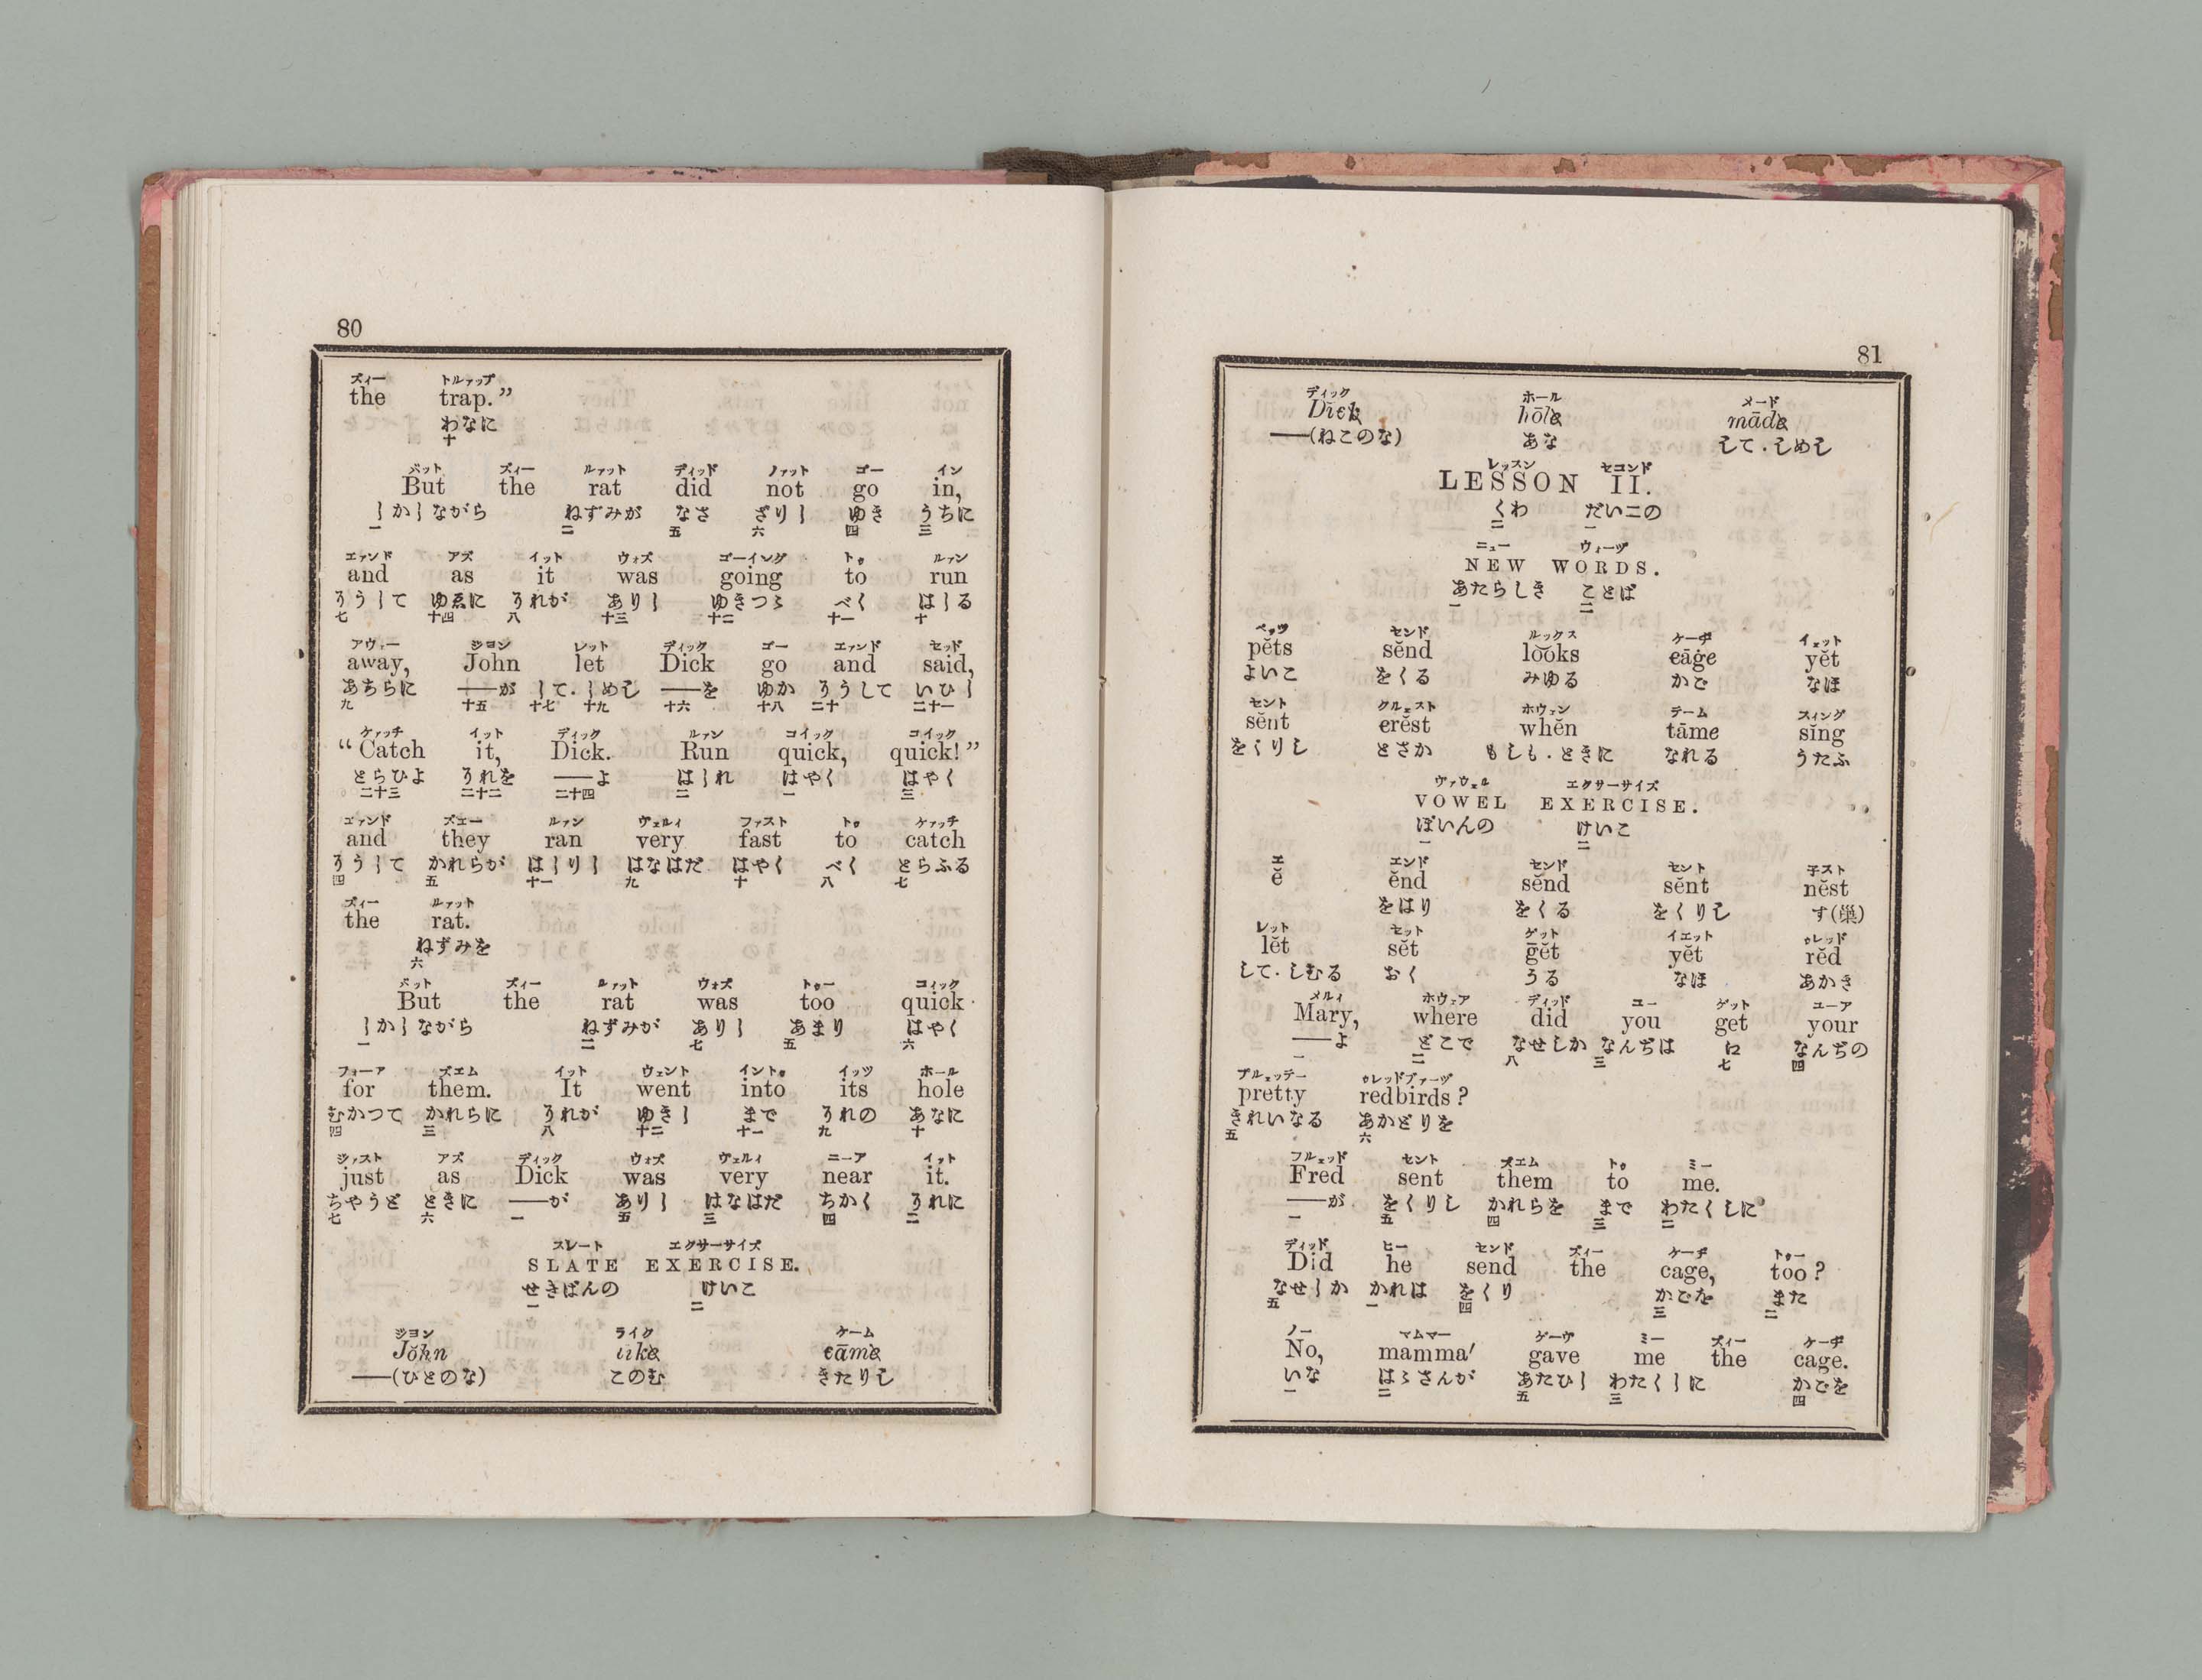 80
ズィー トルァップ
the trap.”
わなに
十
バット ズィー ルァット ディッド ノァット ゴー イン
But the rat did not go in,
しかしながら ねずみが なさ ざりし ゆき うちに
一 二 五 六 四 三
エァンド アズ イット ウォズ ゴーイング トゥ ルァン
and as it was going to run
そうして ゆゑに それが ありし ゆきつゝ べく はしる
七 十四 八 十三 十二 十一 十
アウェー ジョン レット ディック ゴー エァンド セッド
away, John let Dick go and said,
あちらに ——が して．しめし ——を ゆか そうして いひし
九 十五 十七 十九 十六 十八 二十 二十一
ケァッチ イット ディック ルァン コイック コイック
“Catch it, Dick. Run quick, quick!”
とらひよ それを ——よ はしれ はやく はやく
二十三 二十二 二十四 二 一 三
エァンド ズエー ルァン ヴェルィ ファスト トゥ ケァッチ
and they ran very fast to catch
そうして かれらが はしりし はなはだ はやく べく とらふる
四 五 十一 九 十 八 七
ズィー ルァット
the rat.
ねずみを
六
バット ズィー ルァット ウォズ トゥー コィック
But the rat was too quick
しかしながら ねずみが ありし あまり はやく
一 二 七 五 六
フォーア ズエム イット ウェント イントゥ イッツ ホール
for them. It went into its hole
むかつて かれらに それが ゆきし まで それの あなに
四 三 八 十二 十一 九 十
ジァスト アズ ディック ウォズ ヴェルィ ニーア イット
just as Dick was very near it.
ちやうど ときに ——が ありし はなはだ ちかく それに
七 六 一 五 三 四 二
スレート エクサーサイズ
SLATE EXERCISE.
せきばんの けいこ
一 二
ジョン ライク ケーム
Jŏhn like cāme
——(ひとのな) このむ きたりし
81
ディック ホール メード
Dick hōle māde
——(ねこのな) あな して．しめし
レッスン セコンド
LESSON II.
くわ だい二の
二 一
ニュー ウォーヅ
NEW WORDS.
あたらしき ことば
一 二
ペッツ センド ルックス ケーヂ イェット
pĕts sĕnd lo͝oks cāġe yĕt
よいこ をくる みゆる かご なほ
セント クルェスト ホウェン テーム スィング
sĕnt crĕst whĕn tāme sĭng
をくりし とさか もしも．ときに なれる うたふ
ヴァウェル エクサーサイズ
VOWEL EXERCISE.
ぼいんの けいこ
一 二
エ エンド センド セント 子スト
ĕ ĕnd sĕnd sĕnt nĕst
をはり をくる をくりし す(巢)
レット セット ゲット イエット ゥレッド
lĕt sĕt ḡĕt yĕt rĕd
して．しむる おく うる なほ あかき
メルィ ホウェア ディッド ユー ゲット ユーア
Mary, where did you get your
——よ どこで なせしか なんぢは に なんぢの
一 二 八 三 七 四
プルェッテー ゥレッドブァーヅ
pretty redbirds?
きれいなる あかどりを
五 六
フルェッド セント ズエム トゥ ミー
Fred sent them to me.
——が をくりし かれらを まで わたくしに
一 五 四 三 二
ディッド ヒー センド ズィー ケーヂ トゥー
Did he send the cage, too?
なせしか かれは をくり かごを また
五 一 四 三 二
ノー マムマー ゲーヴ ミー ズィー ケーヂ
No, mamma′ gave me the cage.
いな はゝさんが あたひし わたくしに かごを
一 二 五 三 四